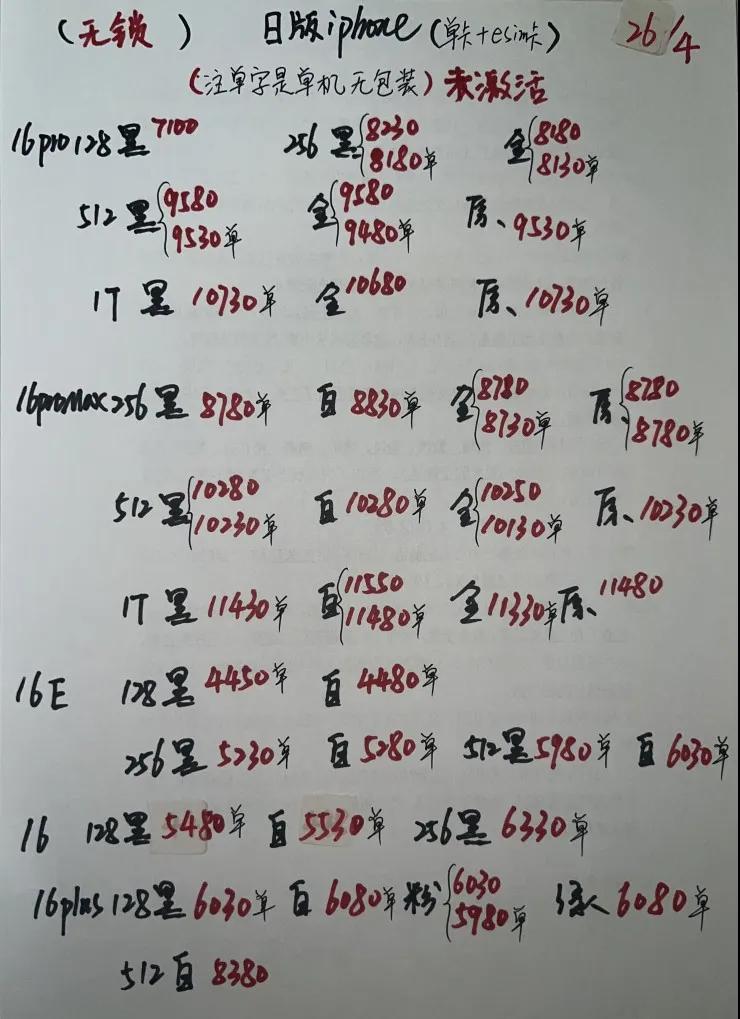 (无锁) 日版iphone(单卡+esim卡) 26/4
(注单字是单机无包装)未激活
16pro128黑7100 256黑{8230 8180单 金{8180 8130单
512黑{9580 9530单 金{9580 9480单 原、9530单
1T黑10730单 金10680 原、10730单
16promax256黑8780单 白8830单 金{8780 8730单 原{8780 8780单
512黑{10280 10230单 白10280单 金{10250 10130单 原、10230单
1T黑11430单 白{11550 11480单 金11330单 原、11480
16E 128黑4450单 白4480单
256黑5230单 白5280单 512黑5980单 白6030单
16 128黑5480单 白5530单 256黑6330单
16plus128黑6030单 白6080单 粉{6030 5980单 6080单
512白8380